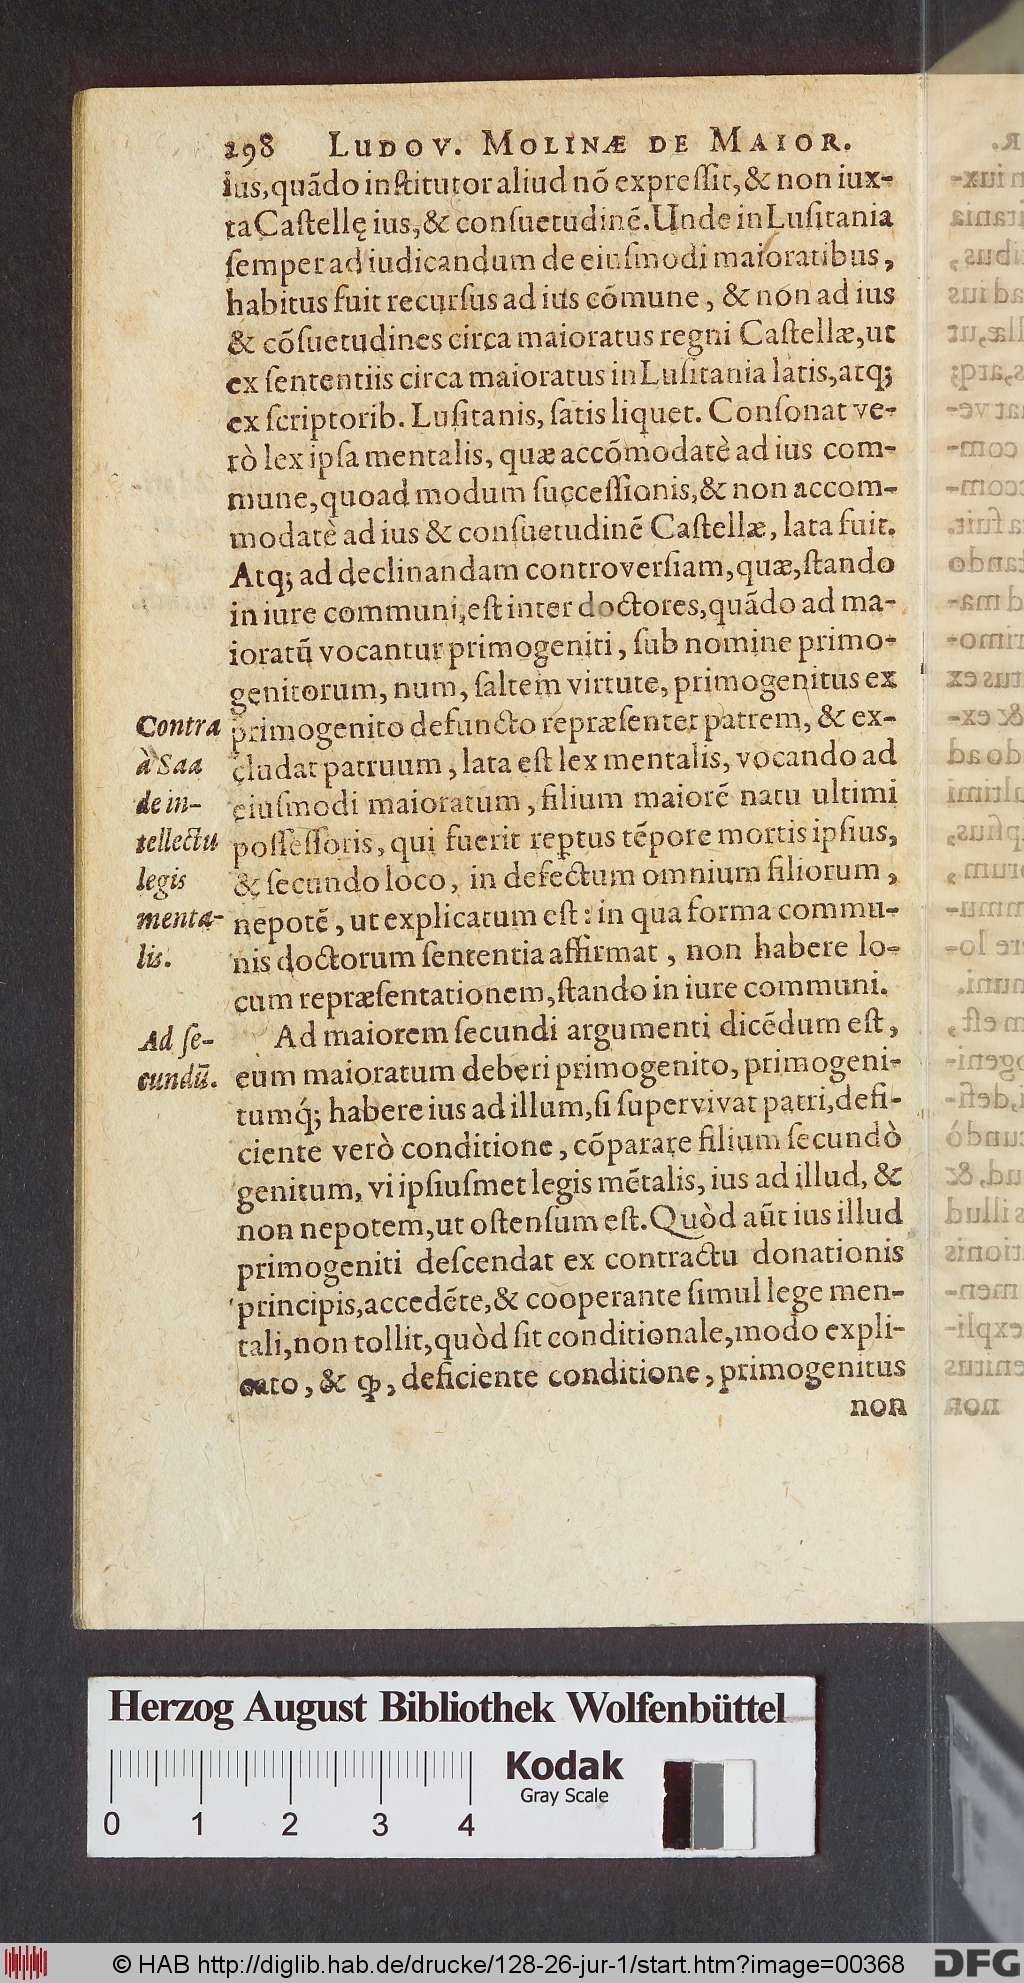 298 LUDOV. MOLINÆ DE MAIOR.
ius,quãdo institutor aliud nõ expressit,& non iux-
ta Castellę ius,& consuetudinẽ.Unde in Lusitania
semper ad iudicandum de eiusmodi maioratibus,
habitus fuit recursus ad ius cõmune, & non ad ius
& cõsuetudines circa maioratus regni Castellæ,ut
ex sententiis circa maioratus in Lusitania latis,atq;
ex scriptorib. Lusitanis, satis liquet. Consonat ve-
rò lex ipsa mentalis, quæ accõmodatè ad ius com-
mune,quoad modum successionis,& non accom-
modatè ad ius & consuetudinẽ Castellæ, lata fuit.
Atq; ad declinandam controversiam,quæ,stando
in iure communi,est inter doctores,quãdo ad ma-
ioratũ vocantur primogeniti, sub nomine primo-
genitorum, num, saltem virtute, primogenitus ex
Contra
à Saa
de in-
tellectu
legis
menta-
lis.
primogenito defuncto repræsentet patrem, & ex-
cludat patruum, lata est lex mentalis, vocando ad
eiusmodi maioratum, filium maiorẽ natu ultimi
possessoris, qui fuerit reptus tẽpore mortis ipsius,
& secundo loco, in defectum omnium filiorum,
nepotẽ, ut explicatum est: in qua forma commu-
nis doctorum sententia affirmat, non habere lo-
cum repræsentationem,stando in iure communi.
Ad se-
cundũ.
Ad maiorem secundi argumenti dicẽdum est,
eum maioratum deberi primogenito, primogeni-
tumq́; habere ius ad illum,si supervivat patri,defi-
ciente verò conditione, cõparare filium secundò
genitum, vi ipsiusmet legis mẽtalis, ius ad illud, &
non nepotem,ut ostensum est.Quòd aũt ius illud
primogeniti descendat ex contractu donationis
principis,accedẽte,& cooperante simul lege men-
tali,non tollit,quòd sit conditionale,modo expli-
cato, & ꝙ, deficiente conditione, primogenitus
non
Herzog August Bibliothek Wolfenbüttel
Kodak
Gray Scale
0 1 2 3 4
© HAB http://diglib.hab.de/drucke/128-26-jur-1/start.htm?image=00368
DFG